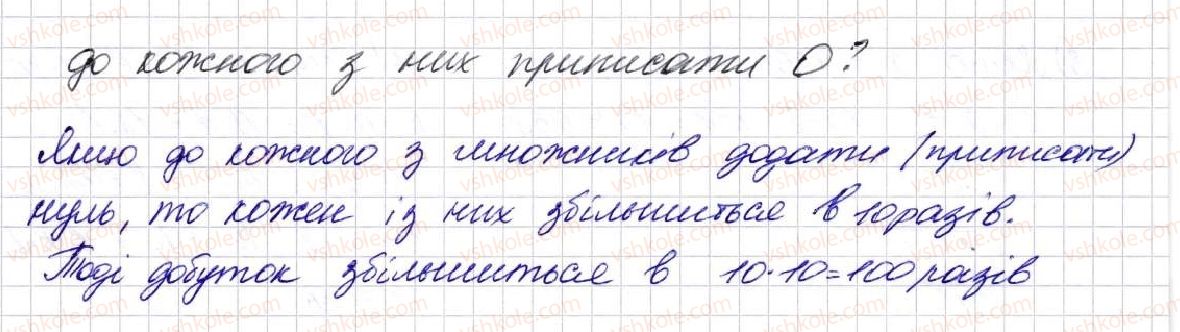 до кожного з них приписати 0?
Якщо до кожного з множників додати (приписати)
нуль, то кожен із них збільшиться в 10 разів.
Тоді добуток збільшиться в 10·10=100 разів